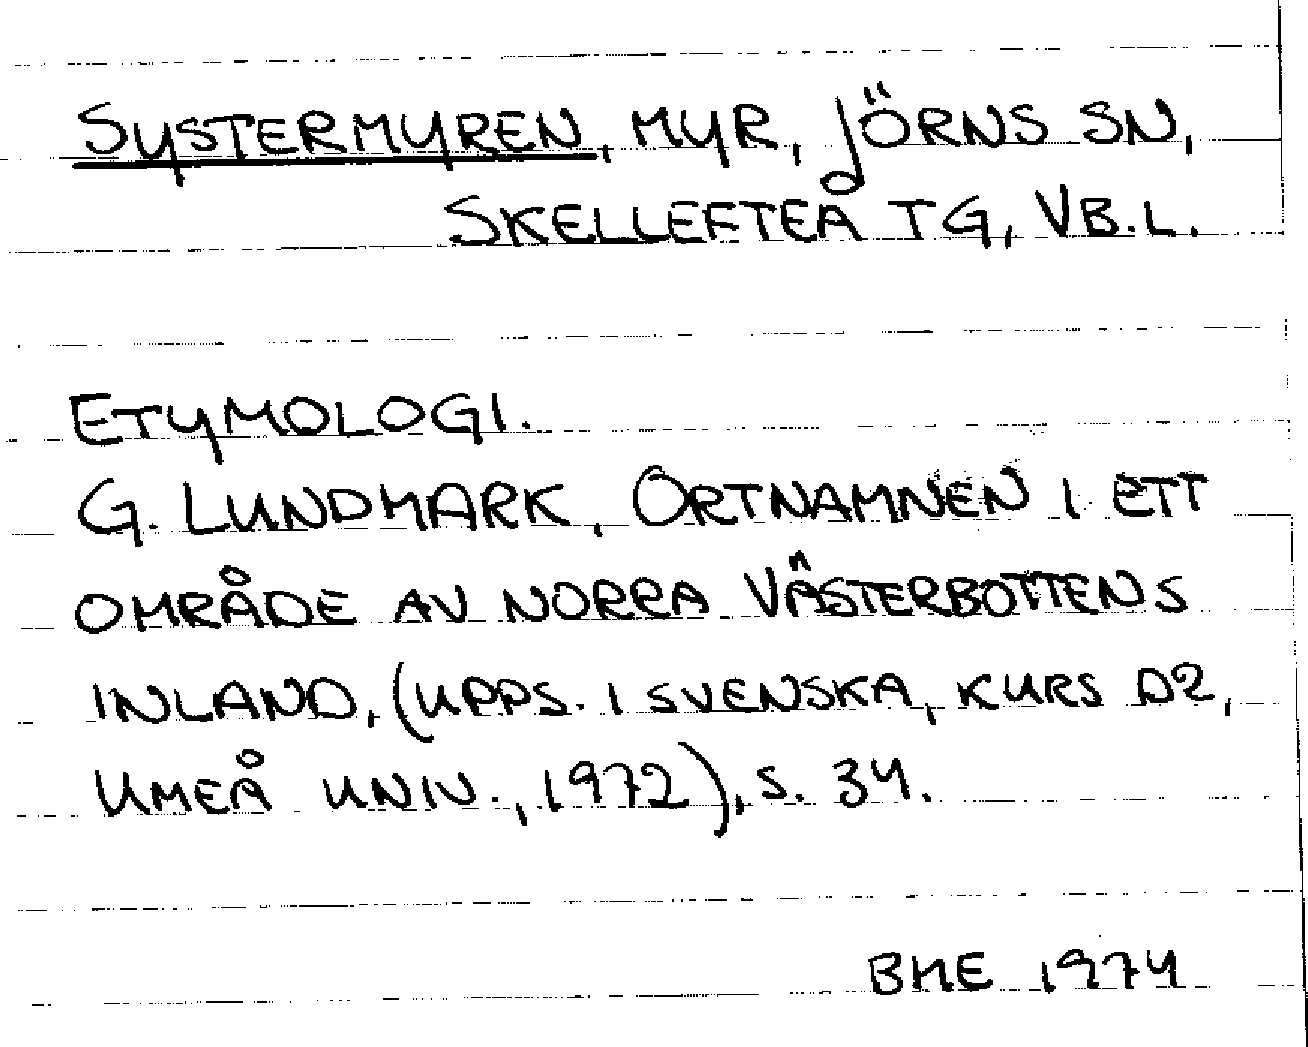 SYSTERMYREN, MYR, JÖRNS SN,
SKELLEFTEÅ TG, VB.L.
ETYMOLOGI.
G. LUNDMARK, ORTNAMNEN I ETT
OMRÅDE AV NORRA VÄSTERBOTTENS
INLAND, (UPPS. I SVENSKA, KURS D2,
UMEÅ UNIV., 1972), S. 34.
BME 1974